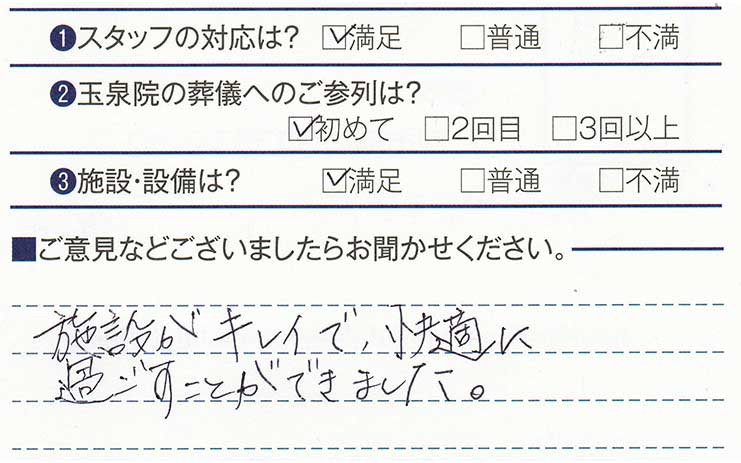 ❶スタッフの対応は? ☑満足 □普通 □不満
❷玉泉院の葬儀へのご参列は?
☑初めて □2回目 □3回以上
❸施設・設備は? ☑満足 □普通 □不満
■ご意見などございましたらお聞かせください。
施設がキレイで、快適に
過ごすことができました。